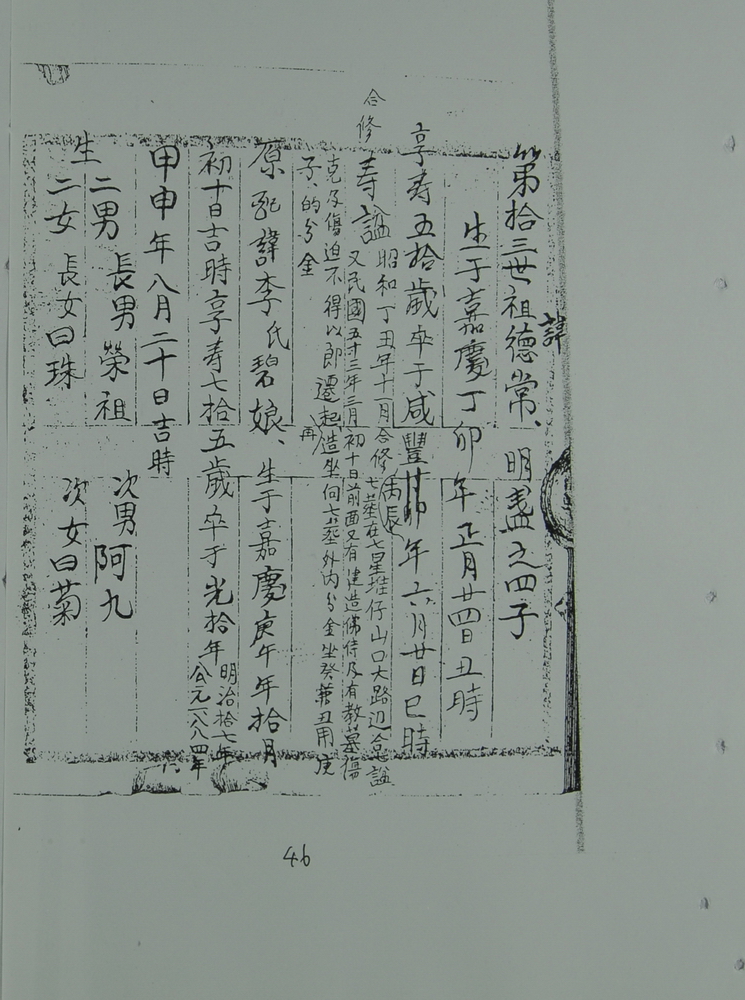 第拾三世祖德常、諱明盞之四子
生于嘉慶丁卯年正月廿四日丑時
享寿五拾歲卒于咸豐丙辰年六月廿日巳時
合修
寿謚昭和丁丑年十一月合修七墓在七星堆仔山口大路辺合謚
又民國五十三年三月初十日前面又有建造佛侍及有教墓傷
克及傷迫不得以即遷起再造坐向七墓外內分金坐癸兼丑用庚
子、的分金
原配諱李氏碧娘、生于嘉慶庚午年拾月
初十日吉時享寿七拾五歲卒于光拾年明治拾七年公元一八八四年
甲申年八月二十日吉時
生二男 長男榮祖 次男阿九
二女 長女曰珠 次女曰菊
46